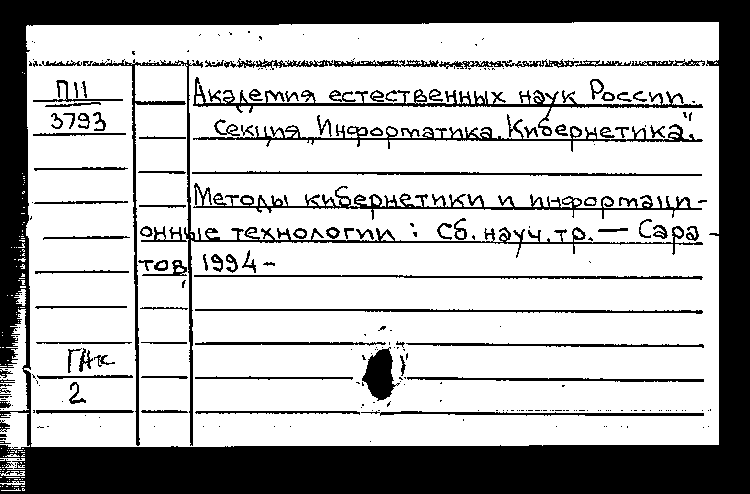 П11
3793
Академия естественных наук России.
Секция „Информатика. Кибернетика".
Методы кибернетики и информаци-
онные технологии : Сб. науч. тр. — Сара-
тов, 1994 -
ГАК
2